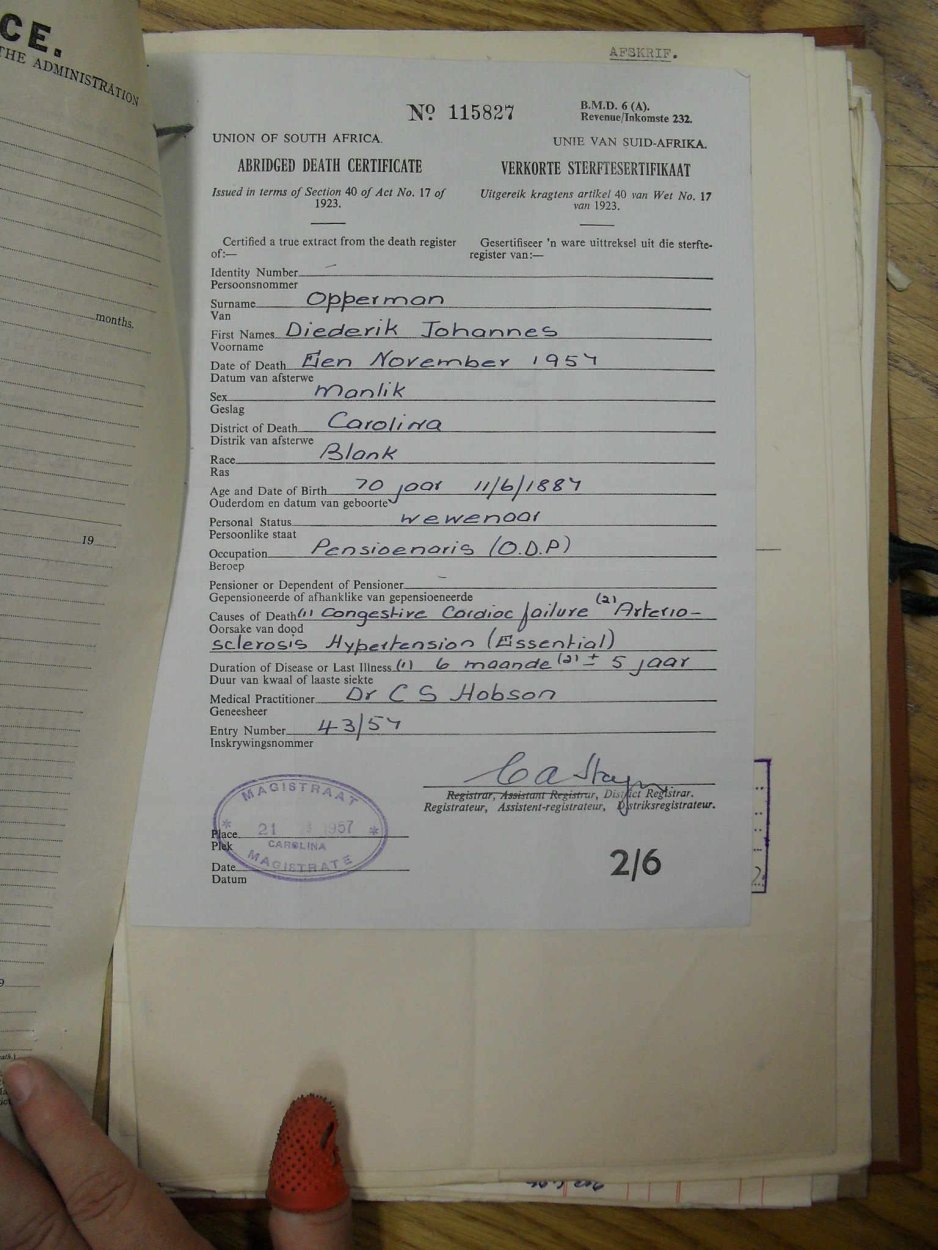 CE.
THE ADMINISTRATION
months.
19
AFSKRIF.
No. 115827
B.M.D. 6 (A).
Revenue/Inkomste 232.
UNION OF SOUTH AFRICA.
UNIE VAN SUID-AFRIKA.
ABRIDGED DEATH CERTIFICATE
VERKORTE STERFTESERTIFIKAAT
Issued in terms of Section 40 of Act No. 17 of
1923.
Uitgereik kragtens artikel 40 van Wet No. 17
van 1923.
Certified a true extract from the death register
of:—
Gesertifiseer 'n ware uittreksel uit die sterfte-
register van:—
Identity Number
Persoonsnommer
Surname Opperman
Van
First Names Diederik Johannes
Voorname
Date of Death Een November 1957
Datum van afsterwe
Sex Manlik
Geslag
District of Death Carolina
Distrik van afsterwe
Race Blank
Ras
Age and Date of Birth 70 jaar 11/6/1887
Ouderdom en datum van geboorte
Personal Status wewenaar
Persoonlike staat
Occupation Pensioenaris (O.D.P)
Beroep
Pensioner or Dependent of Pensioner -
Gepensioeneerde of afhanklike van gepensioeneerde
Causes of Death (1) Congestive Cardiac failure (2) Arterio-
Oorsake van dood
sclerosis Hypertension (Essential)
Duration of Disease or Last Illness (1) 6 maande (2) ± 5 jaar
Duur van kwaal of laaste siekte
Medical Practitioner Dr C S Hobson
Geneesheer
Entry Number 43/57
Inskrywingsnommer
Registrar, Assistant Registrar, District Registrar.
Registrateur, Assistent-registrateur, Distriksregistrateur.
MAGISTRAAT
21 1957
CAROLINA
MAGISTRATE
Place
Plek
Date
Datum
2/6